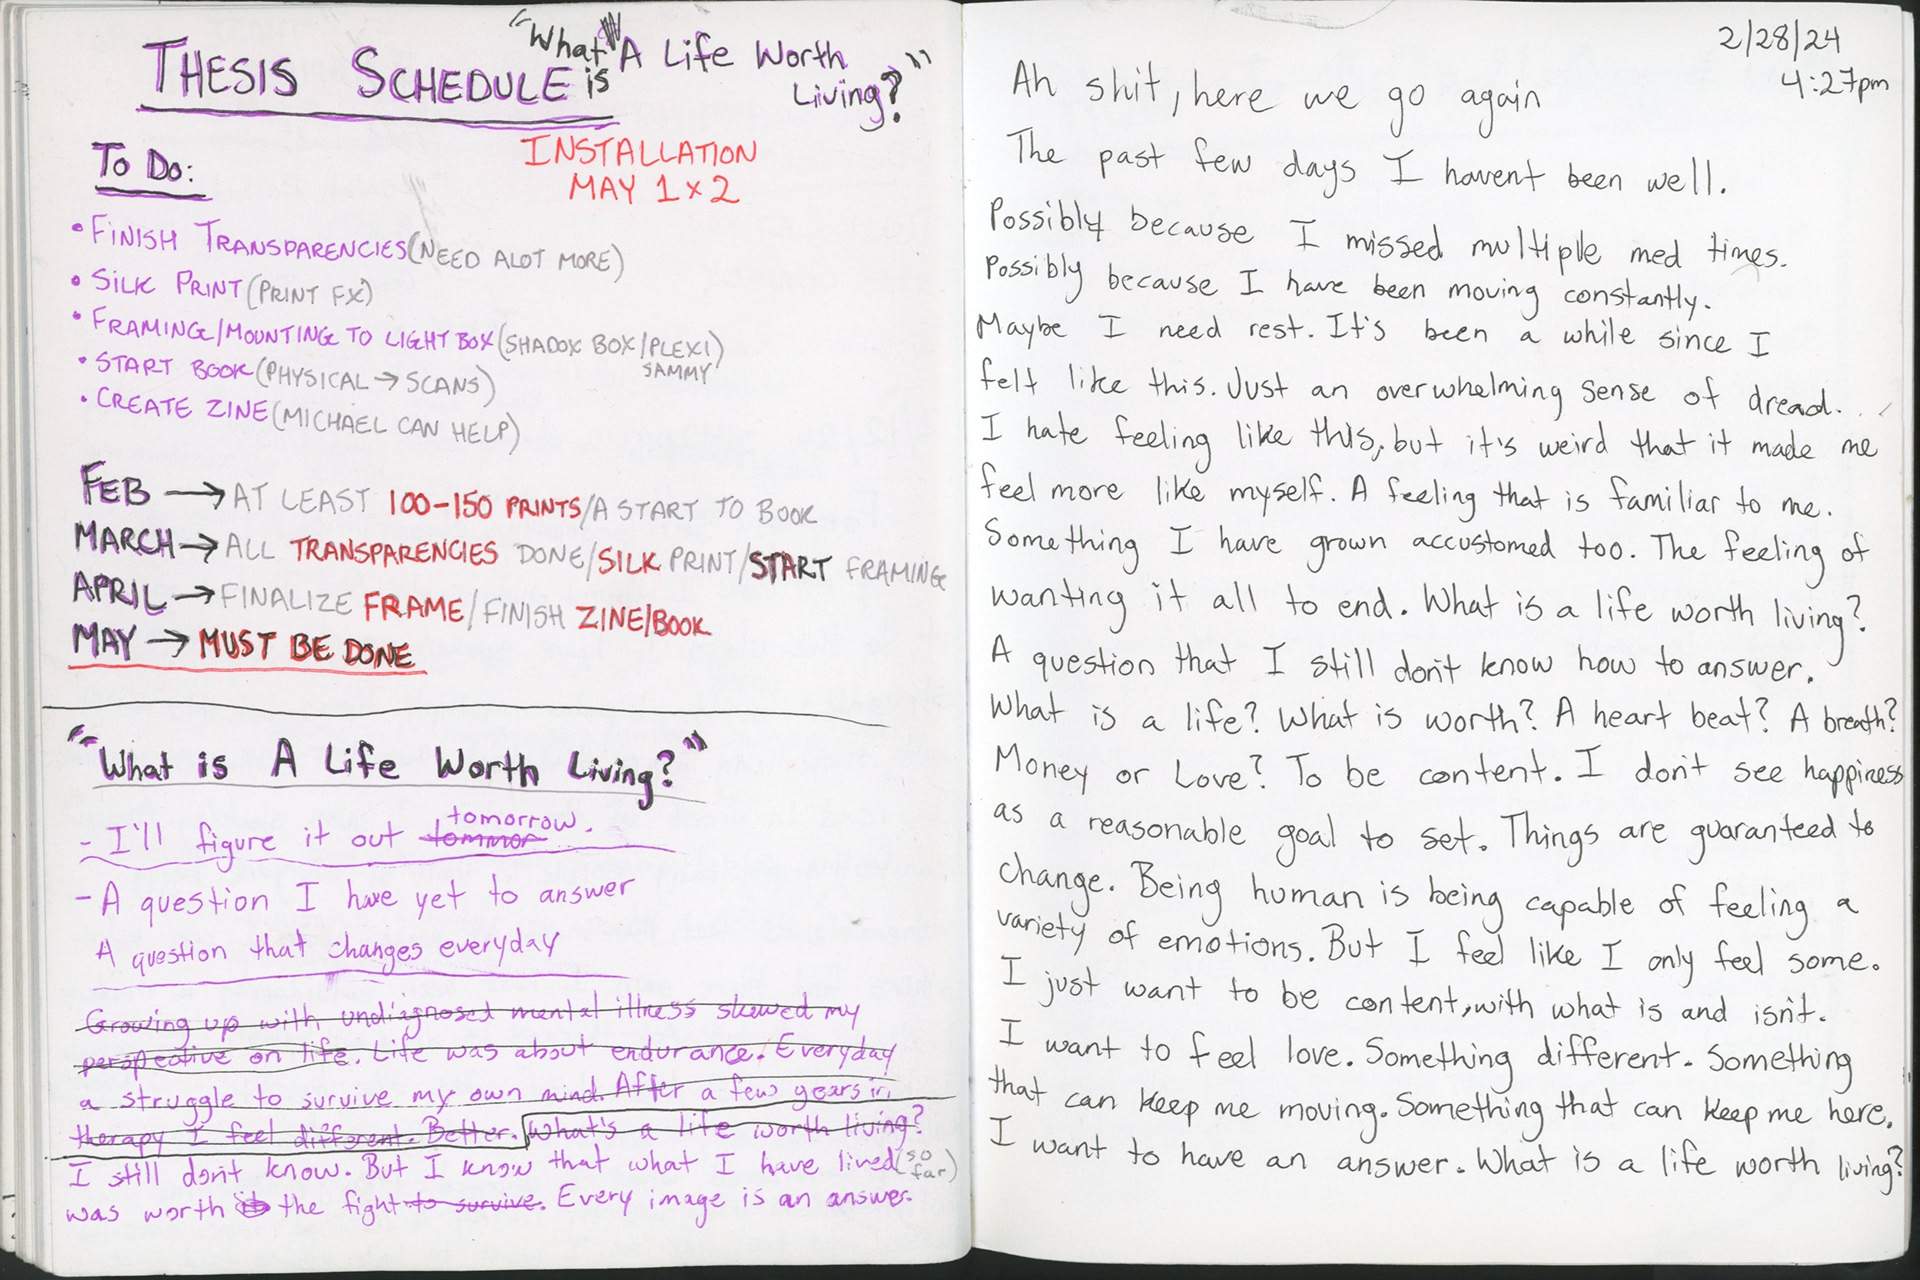 THESIS SCHEDULE
"What is A Life Worth
Living?"
INSTALLATION
MAY 1 x 2
To Do:
• FINISH TRANSPARENCIES (NEED ALOT MORE)
• SILK PRINT (PRINT FX)
• FRAMING/MOUNTING TO LIGHT BOX (SHADOX BOX/PLEXI)
SAMMY
• START BOOK (PHYSICAL → SCANS)
• CREATE ZINE (MICHAEL CAN HELP)
FEB → AT LEAST 100-150 PRINTS/A START TO BOOK
MARCH → ALL TRANSPARENCIES DONE/SILK PRINT/START FRAMING
APRIL → FINALIZE FRAME/FINISH ZINE/BOOK
MAY → MUST BE DONE
"What is A Life Worth Living?"
- I'll figure it out tommor tomorrow.
- A question I have yet to answer
A question that changes everyday
Growing up with undiagnosed mental illness skewed my
perspective on life. Life was about endurance. Everyday
a struggle to survive my own mind. After a few years in
therapy I feel different. Better. What's a life worth living?
I still don't know. But I know that what I have lived (so far)
was worth the fight to survive. Every image is an answer.
2/28/24
4:27pm
Ah shit, here we go again
The past few days I havent been well.
Possibly because I missed multiple med times.
Possibly because I have been moving constantly.
Maybe I need rest. It's been a while since I
felt like this. Just an overwhelming sense of dread.
I hate feeling like this, but it's weird that it made me
feel more like myself. A feeling that is familiar to me.
Something I have grown accustomed too. The feeling of
wanting it all to end. What is a life worth living?
A question that I still don't know how to answer.
What is a life? What is worth? A heart beat? A breath?
Money or Love? To be content. I don't see happiness
as a reasonable goal to set. Things are guaranteed to
change. Being human is being capable of feeling a
variety of emotions. But I feel like I only feel some.
I just want to be content, with what is and isn't.
I want to feel love. Something different. Something
that can keep me moving. Something that can keep me here.
I want to have an answer. What is a life worth living?